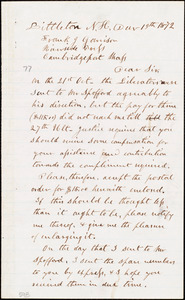 Littleton N.H. Nov 19th 1872
Francis J. Garrison
Riverside Press
Cambridgeport Mass
Dear Sir
On the 21st Oct. the Liberators were
sent to Mr Spofford agreeably to
his direction, but the pay for them
did not reach me till the
27th Ult. Justice requires that you
make some compensation for
your
contribution
towards the complement required.
Please, therefore, accept the postal
order for $ herewith enclosed.
If this should be thought less
than it ought to be, please notify
me thereof, & give me the pleasure
of enlarging it.
On the day that I sent to Mr
Spofford, I sent the spare numbers
to you by Express, & I hope you
received them in due time.